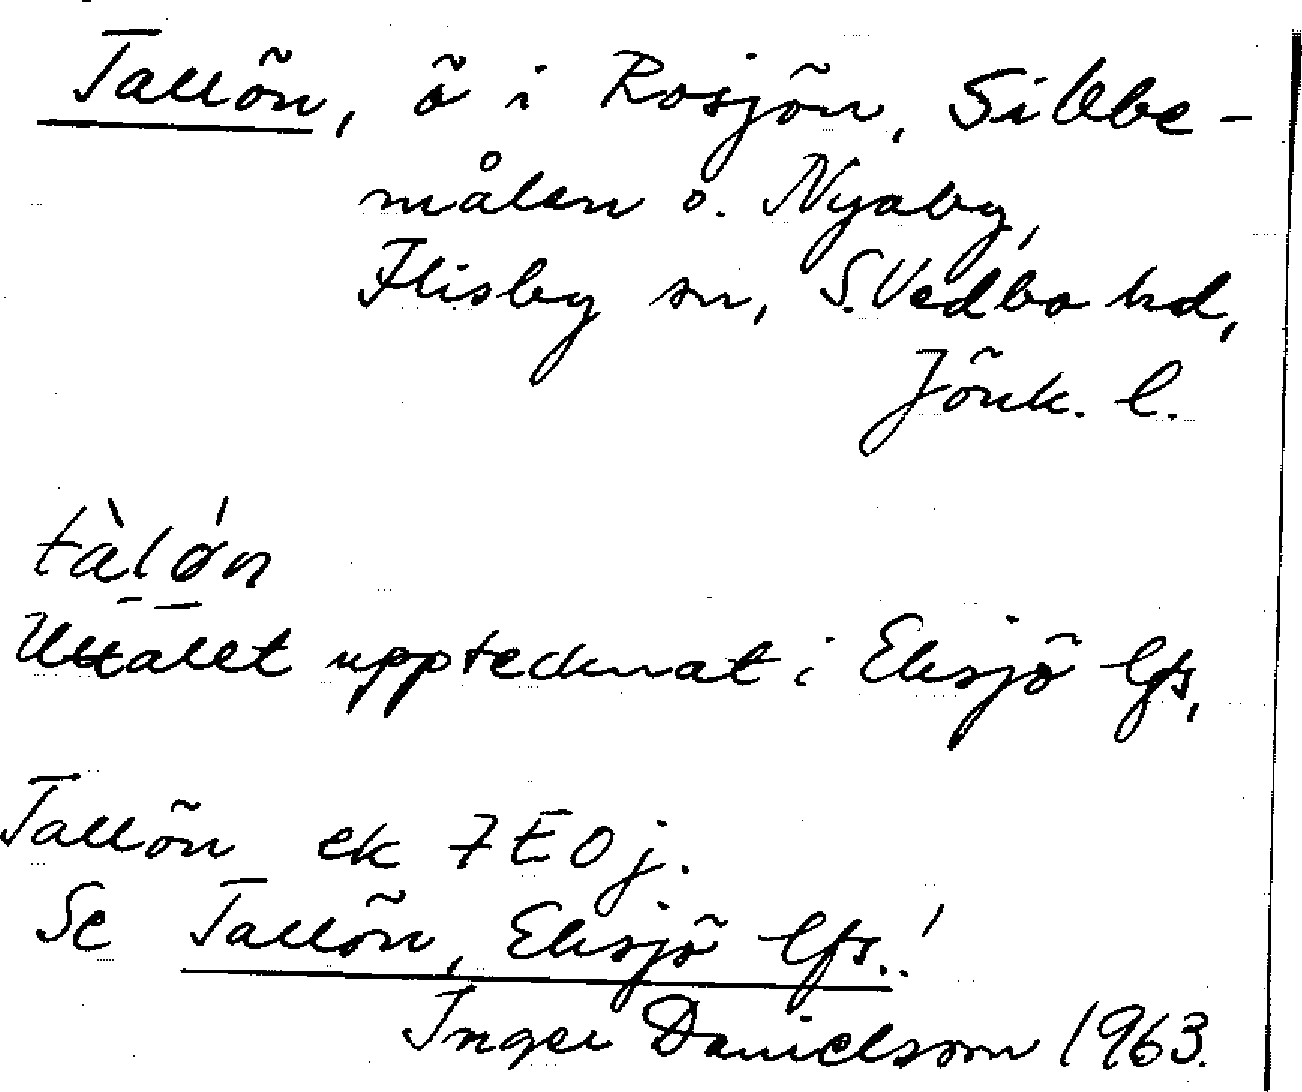 Tallön, ö i Rosjön, Sibbe-
målen o. Nyaby,
Flisby sn, S. Vedbo hd,
Jönk. l.
tàlǿn
Uttalet upptecknat i Eksjö lfs,
Tallön ek 7E0j.
Se Tallön, Eksjö lfs.!
Inger Danielsson 1963.